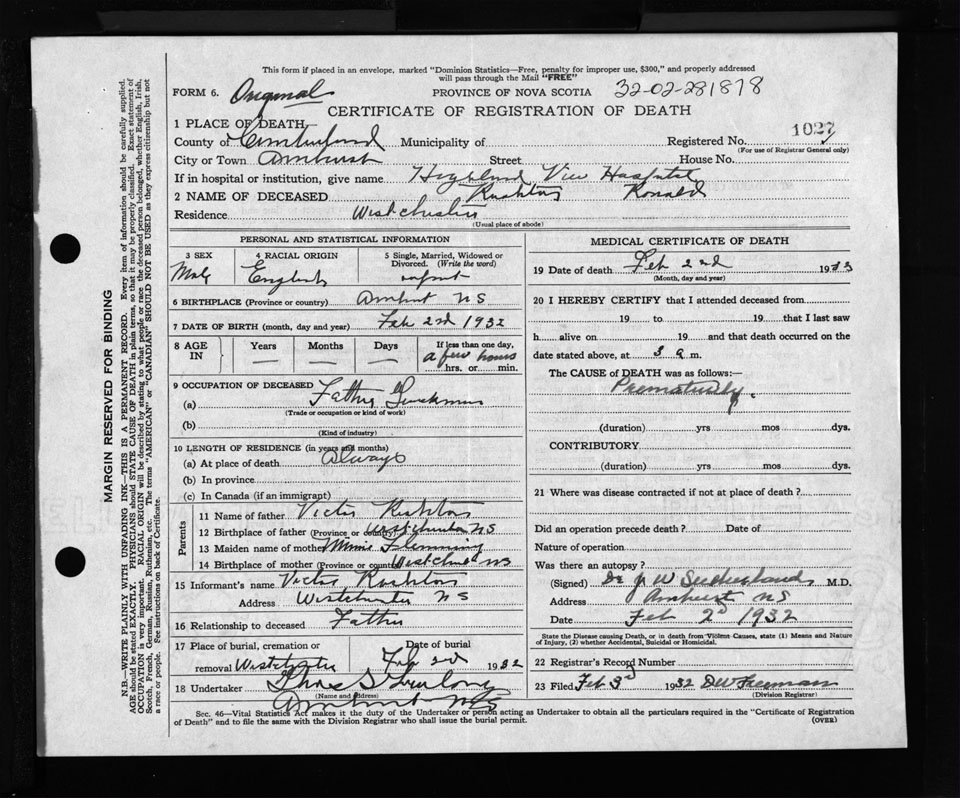 This form if placed in an envelope, marked "Dominion Statistics—Free, penalty for improper use, $300," and properly addressed
will pass through the Mail "FREE"
FORM 6. Original PROVINCE OF NOVA SCOTIA 32-02-281878
CERTIFICATE OF REGISTRATION OF DEATH
1 PLACE OF DEATH— 1027
County of Cumberland Municipality of Registered No.
(For use of Registrar General only)
City or Town Amherst Street House No.
If in hospital or institution, give name Highland View Hospital
2 NAME OF DECEASED Rushton Ronald
Residence Westchester
(Usual place of abode)
PERSONAL AND STATISTICAL INFORMATION
3 SEX 4 RACIAL ORIGIN 5 Single, Married, Widowed or
Divorced. (Write the word)
Male English infant
6 BIRTHPLACE (Province or country) Amherst NS
7 DATE OF BIRTH (month, day and year) Feb 2nd 1932
8 AGE IN Years Months Days If less than one day,
a few hours
hrs. or min.
9 OCCUPATION OF DECEASED
(a) Father
(Trade or occupation or kind of work)
(b)
(Kind of industry)
10 LENGTH OF RESIDENCE (in years and months)
(a) At place of death Always
(b) In province
(c) In Canada (if an immigrant)
Parents
11 Name of father Victor Rushton
12 Birthplace of father (Province or country) Westchester NS
13 Maiden name of mother Minnie Flemming
14 Birthplace of mother (Province or country) Westchester NS
15 Informant's name Victor Rushton
Address Westchester NS
16 Relationship to deceased Father
17 Place of burial, cremation or Date of burial
removal Westchester Feb 2nd 1932
18 Undertaker
(Name and address)
Amherst NS
MEDICAL CERTIFICATE OF DEATH
19 Date of death Feb 2nd 1932
(Month, day and year)
20 I HEREBY CERTIFY that I attended deceased from
19 to 19 that I last saw
h alive on 19 and that death occurred on the
date stated above, at 3 a m.
The CAUSE of DEATH was as follows:—
Prematurity.
(duration) yrs mos dys.
CONTRIBUTORY
(duration) yrs mos dys.
21 Where was disease contracted if not at place of death?
Did an operation precede death? Date of
Nature of operation
Was there an autopsy?
(Signed) Dr J W Sutherland M.D.
Address Amherst NS
Date Feb 2d 1932
State the Disease causing Death, or in death from Violent Causes, state (1) Means and Nature
of Injury, (2) whether Accidental, Suicidal or Homicidal.
22 Registrar's Record Number
23 Filed Feb 3rd 1932 DW Freeman
(Division Registrar)
Sec. 46—Vital Statistics Act makes it the duty of the Undertaker or person acting as Undertaker to obtain all the particulars required in the "Certificate of Registration
of Death" and to file the same with the Division Registrar who shall issue the burial permit. (OVER)
MARGIN RESERVED FOR BINDING
N.B.—WRITE PLAINLY WITH UNFADING INK—THIS IS A PERMANENT RECORD. Every item of information should be carefully supplied.
AGE should be stated EXACTLY. PHYSICIANS should STATE CAUSE OF DEATH in plain terms, so that it may be properly classified. Exact statement of
OCCUPATION is very important. RACIAL ORIGIN will be described by stating to what people or race the deceased person belonged, whether English, Irish,
Scotch, French, German, Russian, Ruthenian, etc. The terms "AMERICAN" or "CANADIAN" SHOULD NOT BE USED as they express citizenship but not
a race or people. See instructions on back of Certificate.